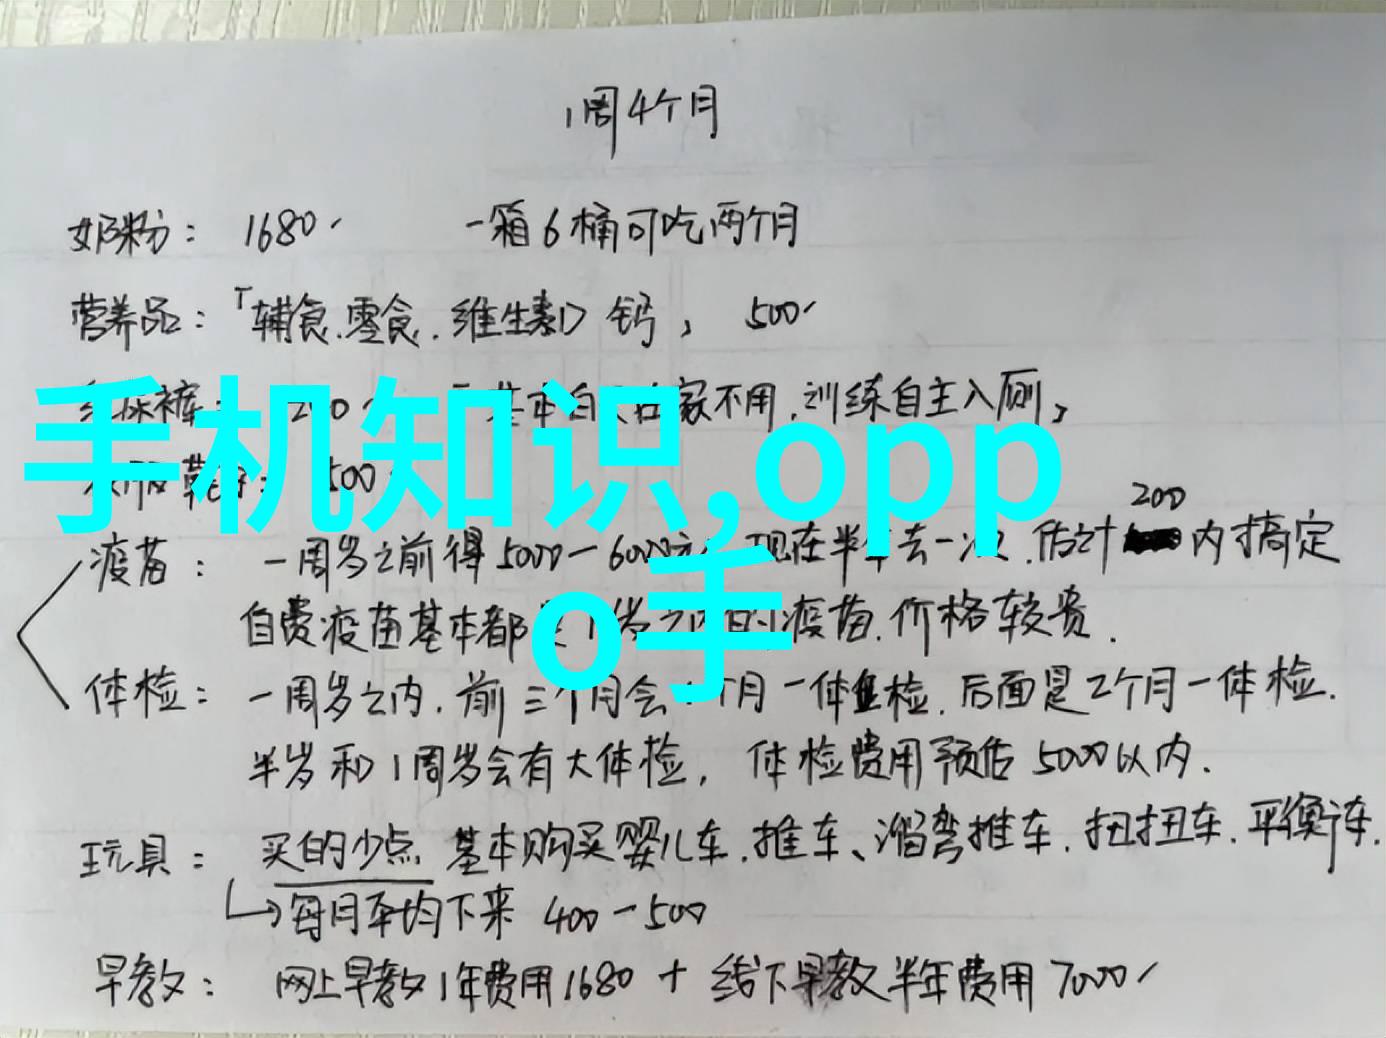 1周4个月
奶粉： 1680 一箱6桶可吃两个月
营养品：「辅食.零食.维生素D 钙， 500
裤： 200 基本白天在家不用.训练自主入厕，
手机知识,opp
500
200
疫苗： 一周岁之前得5000-6000元 现在半年去一次.估计 内搞定
自费疫苗基本都是1岁之内的疫苗.价格较贵.
o手
体检： 一周岁之内.前三个月会 个月一体检.后面是2个月一体检.
半岁和1周岁会有大体检， 体检费用预估5000以内.
玩具： 买的少点 基本购买婴儿车.推车、溜弯推车.扭扭车.平衡车.
每月平均下来 400-500
早教： 网上早教1年费用1680 + 线下早教半年费用7000